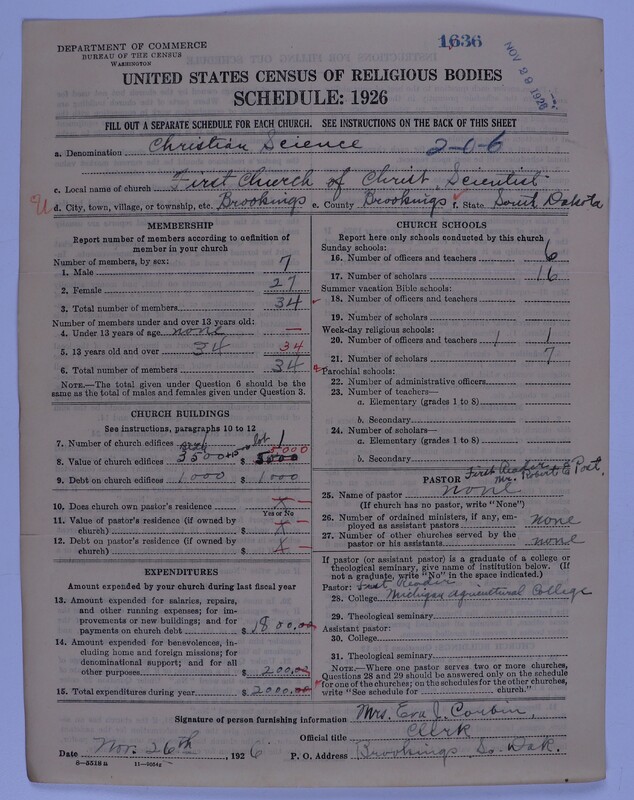 DEPARTMENT OF COMMERCE
BUREAU OF THE CENSUS
WASHINGTON
1636
NOV 29 1926
UNITED STATES CENSUS OF RELIGIOUS BODIES
SCHEDULE: 1926
FILL OUT A SEPARATE SCHEDULE FOR EACH CHURCH. SEE INSTRUCTIONS ON THE BACK OF THIS SHEET
a. Denomination Christian Science 2-0-6
c. Local name of church First Church of Christ, Scientist
d. City, town, village, or township, etc. Brookings e. County Brookings f. State South Dakota
MEMBERSHIP
Report number of members according to definition of member in your church
Number of members, by sex:
1. Male 7
2. Female 27
3. Total number of members 34
Number of members under and over 13 years old:
4. Under 13 years of age none —
5. 13 years old and over 34 34
6. Total number of members 34
NOTE.—The total given under Question 6 should be the same as the total of males and females given under Question 3.
CHURCH BUILDINGS
See instructions, paragraphs 10 to 12
7. Number of church edifices 1
8. Value of church edifices 3500 + lot $ 5000
9. Debt on church edifices 1000 $ 1000
10. Does church own pastor's residence? x
Yes or No
11. Value of pastor's residence (if owned by church) $ x
12. Debt on pastor's residence (if owned by church) $ x
EXPENDITURES
Amount expended by your church during last fiscal year
13. Amount expended for salaries, repairs, and other running expenses; for improvements or new buildings; and for payments on church debt $ 1800.00
14. Amount expended for benevolences, including home and foreign missions; for denominational support; and for all other purposes $ 200.00
15. Total expenditures during year $ 2000.00
CHURCH SCHOOLS
Report here only schools conducted by this church
Sunday schools:
16. Number of officers and teachers 6
17. Number of scholars 16
Summer vacation Bible schools:
18. Number of officers and teachers
19. Number of scholars
Week-day religious schools:
20. Number of officers and teachers 1 1
21. Number of scholars 7
Parochial schools:
22. Number of administrative officers
23. Number of teachers—
a. Elementary (grades 1 to 8)
b. Secondary
24. Number of scholars—
a. Elementary (grades 1 to 8)
b. Secondary
PASTOR First Reader
Mr. Robert E. Post.
25. Name of pastor none
(If church has no pastor, write "None")
26. Number of ordained ministers, if any, employed as assistant pastors none
27. Number of other churches served by the pastor or his assistants none
If pastor (or assistant pastor) is a graduate of a college or theological seminary, give name of institution below. (If not a graduate, write "No" in the space indicated.)
Pastor: First Reader
28. College Michigan Agricultural College
29. Theological seminary
Assistant pastor:
30. College
31. Theological seminary
NOTE.—Where one pastor serves two or more churches, Questions 28 and 29 should be answered only on the schedule for one of the churches; on the schedules for the other churches, write "See schedule for church."
Signature of person furnishing information Mrs. Eva J. Corbin,
Official title Clerk
Date Nov. 26th, 1926 P. O. Address Brookings So. Dak.
8—5518a 11—9054z